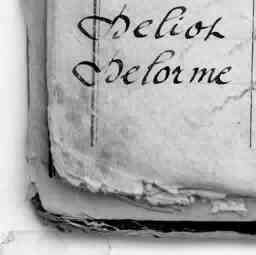 Deliot
Delorme